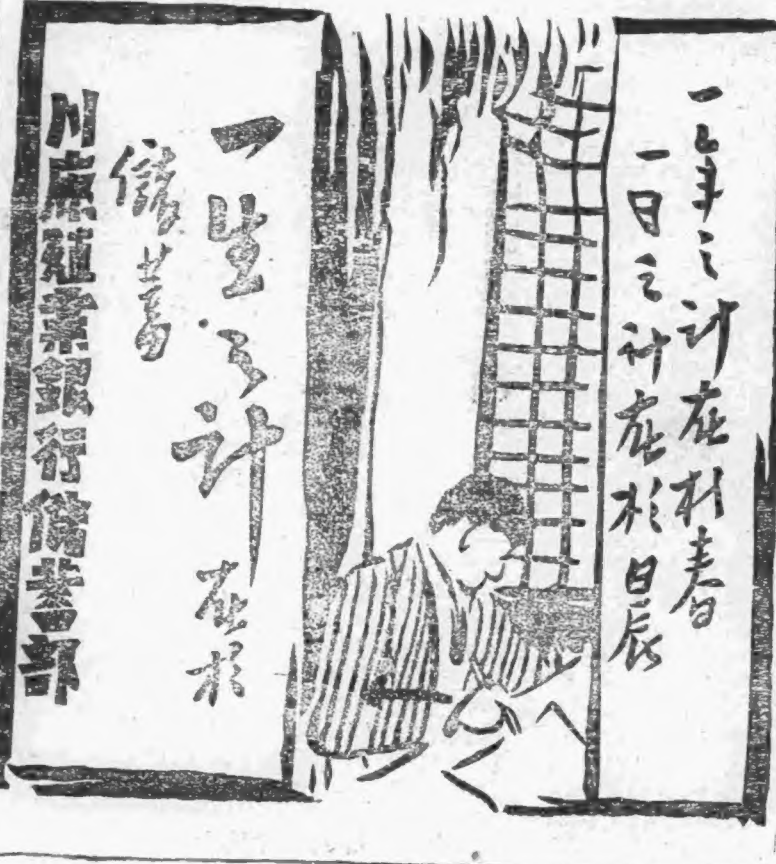 一年之計在於春
一日之計在於晨
一生之計在於
儲蓄
川康殖業銀行儲蓄部